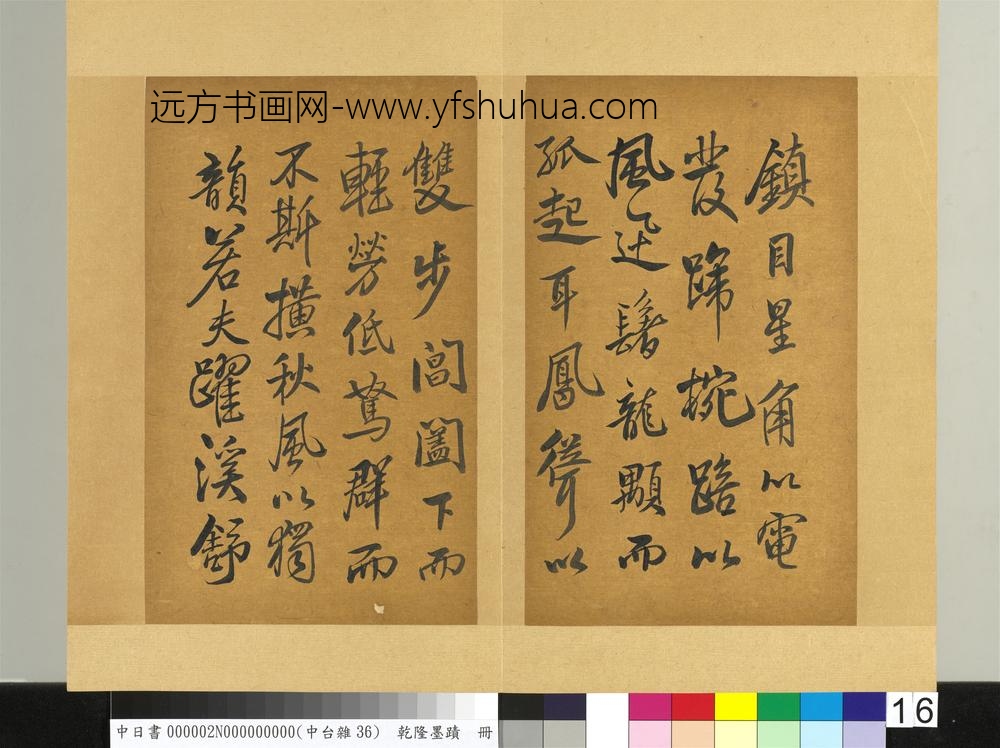 远方书画网-www.yfshuhua.com
鎮目星角以電
發蹄椀踣以
風迋鬐龍顒而
孤起耳鳳聳以
雙步閶闔下而
輕勞低鴛群而
不斯擴秋風以獨
韻若夫躍溪舒
中日書000002N000000000(中台雜36) 乾隆墨蹟 冊
16